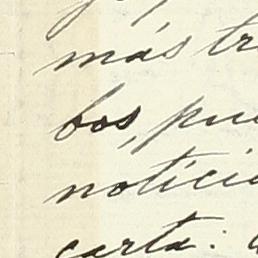 más tr
bos, pue
notici
carta: